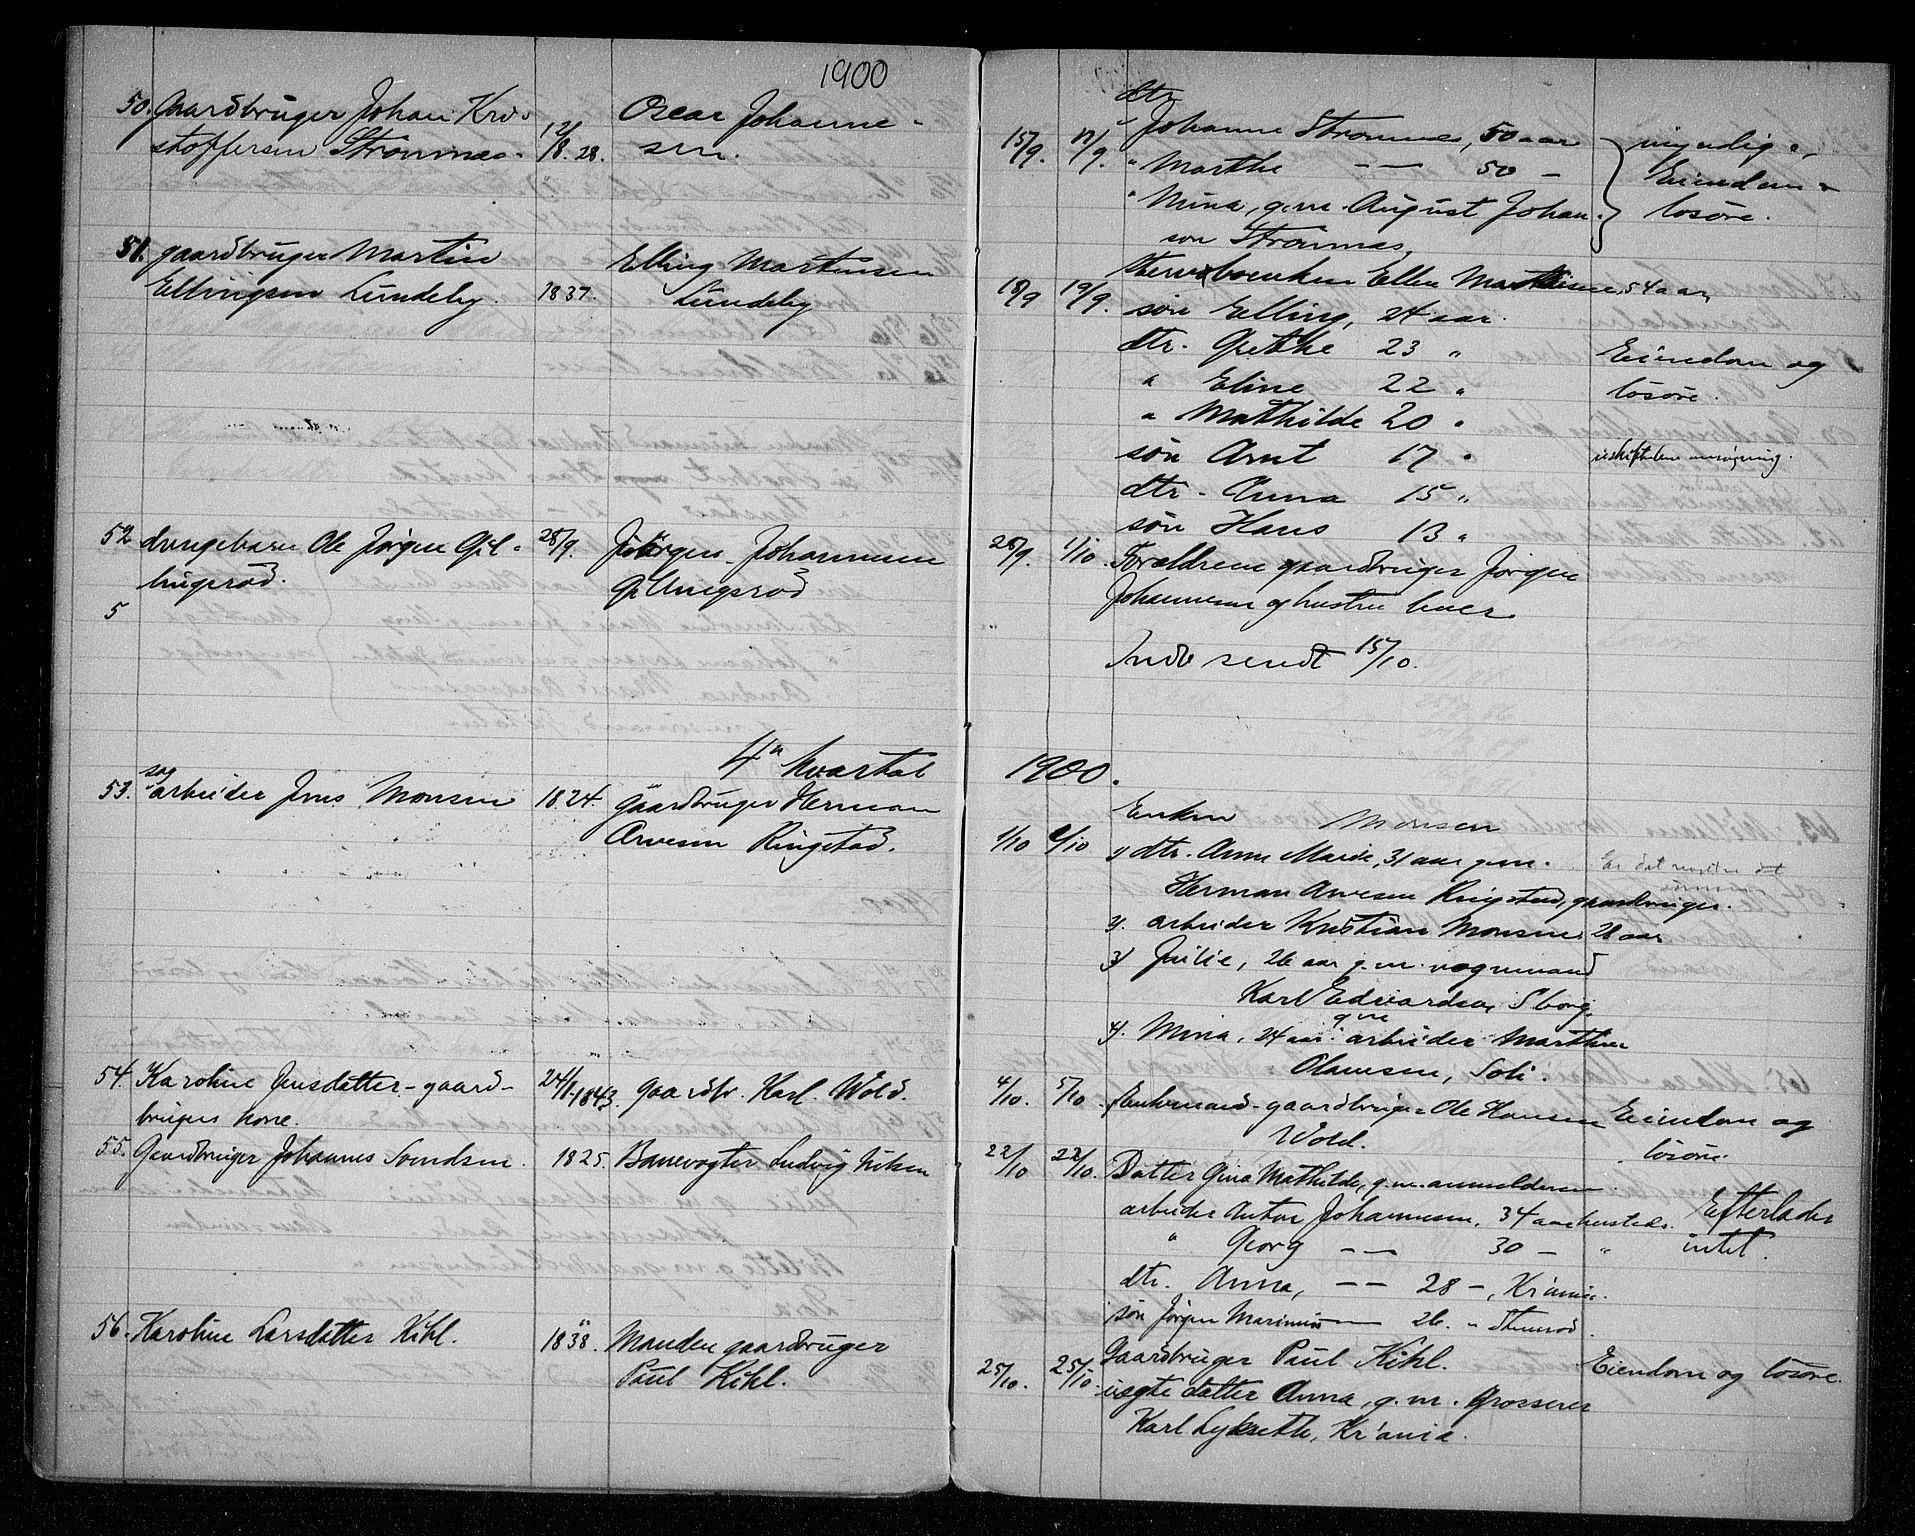 1900
50. Gaardbruger Johan Kri-
stoffersen Strømnæs. 12/8. 28.
Oscar Johanne-
sen.
51. gaardbruger Martin
Ellingsen Lundeby. 1837.
Elling Martinsen
Lundeby
52 drengebarn Ole Jørgen Gil-
lingsrød. 28/9.
Jörgen Johannesen
Gillingsrød
5
4de kvartal
53. sag
arbeider Jens Monsen 1824. gaardbruger Herman
Arvesen Ringstad.
54. Karoline Jensdatter - gaard-
brugers kone. 24/1-1843. gaardbr. Karl Wold.
55. Gaardbruger Johannes Svendsen. 1825. Banevogter Ludvig
56. Karoline Larsdatter Kihl. 1838. Manden gaardbruger
Paul Kihl.
dtr
15/9. 17/9. Johanne Strømnæs, 50 aar myndige,
" Marthe — — 50 — Eiendom og
" Mina, g.m. August Johan- løsøre.
sen Strømnæs
18/9 19/9. Enken Ellen Mathisen, 54 aar
søn Elling, 24 aar.
dtr. Grethe 23 " Eiendom og
" Eline 22 " løsøre.
" Mathilde 20 "
søn Arnt 17 "
dtr. Anna 15 "
søn Hans 13 "
28/9 1/10. Forældrene gaardbruger Jørgen
Johannesen og hustru lever
Indsendt 15/10.
1900.
Enken Monsen
1/10 1/10 1) dtr. Anne Marie, 31 aar g.m. Er det
Herman Arvesen Ringstad, gaardbruger.
2). arbeider Kristian Monsen 28 aar
3) Julie, 26 aar g.m. vognmand
Karl Edvardsen, Sborg
4). Mina, 24 aar gm arbeider Marthin
Olaussen, Soli.
4/10. 5/10. Enkemand - gaardbruger Ole Hansen Eiendom og
Wold. løsøre.
22/10 22/10. Datter Gina Mathilde, g.m. anmelderen
arbeider Anton Johannesen, 34 aar hersteds. Efterlader
" Georg — — 30 — " intet.
dtr. Anna, — — 28 —, Kr'ania.
søn Jørgen Marinius — 26. "
25/10. 25/10. Gaardbruger Paul Kihl. Eiendom og løsøre.
uægte datter Anna, g.m. Grosserer
Karl Lyksæth, Kr'ania.